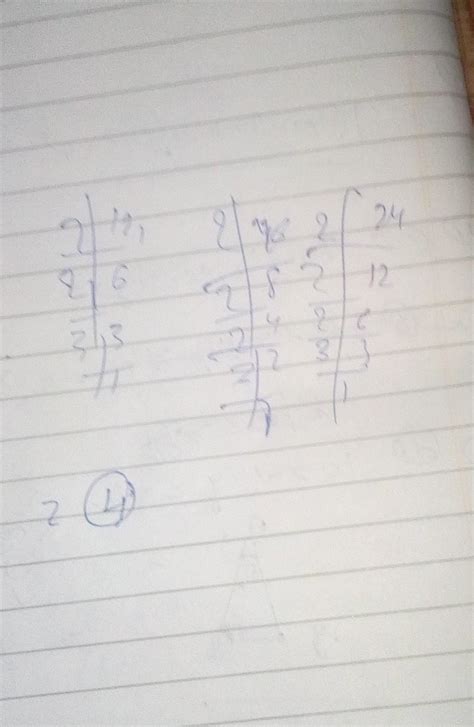 2 | 12, 2 | 16 2 | 24
2 | 6 2 | 8 2 | 12
3 | 3 2 | 4 2 | 6
1 2 | 2 3 | 3
1 1
= 4